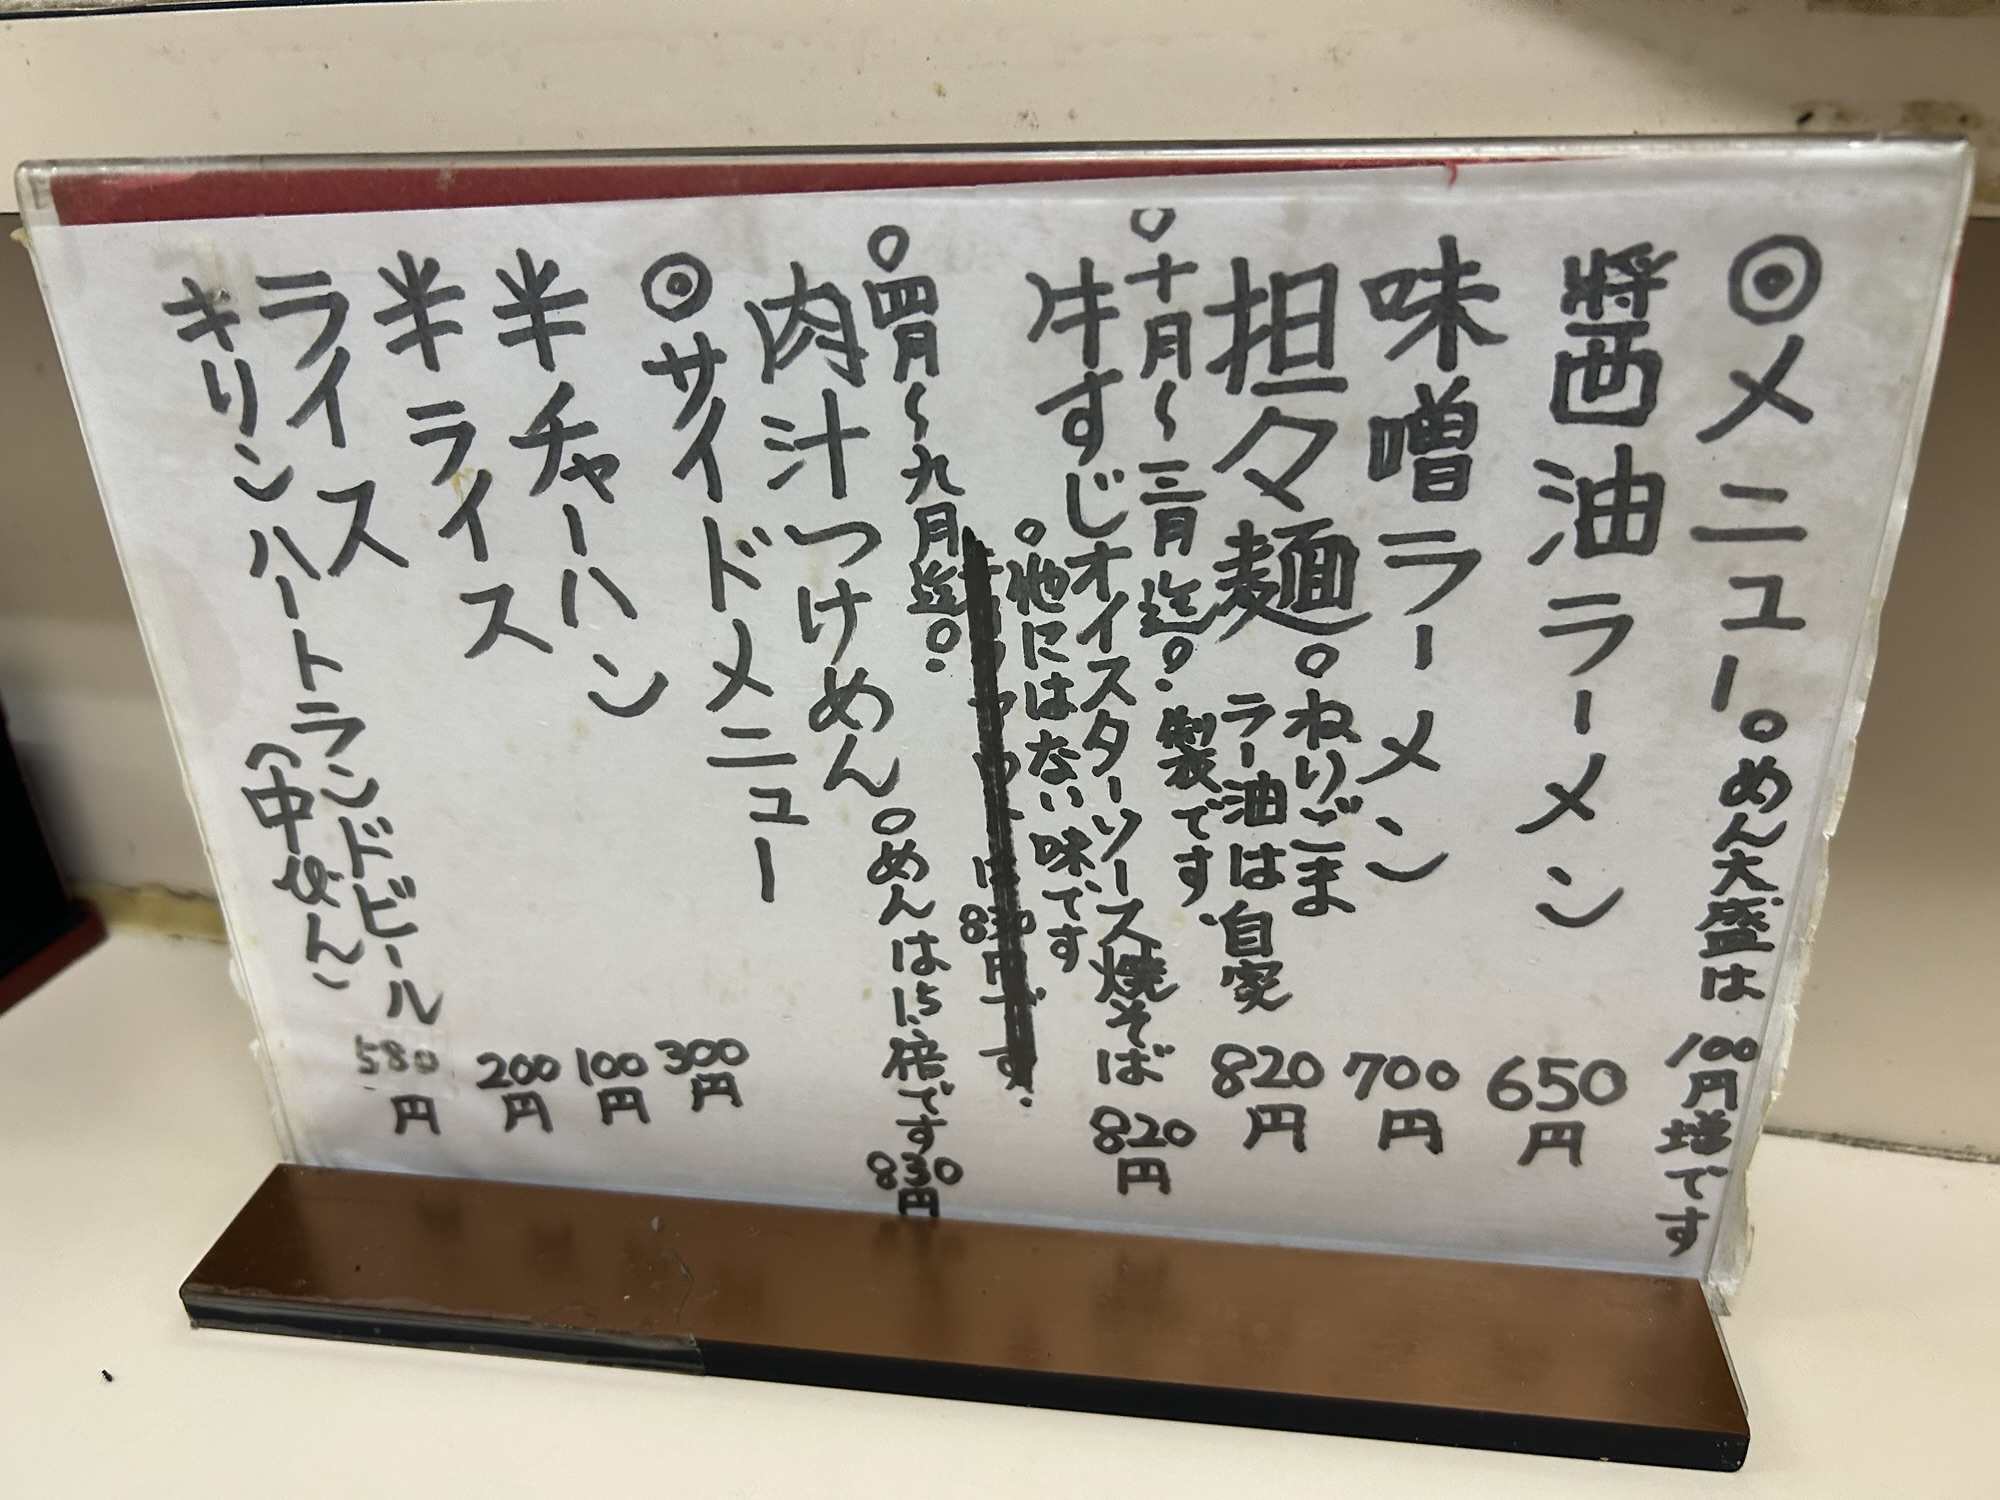 ◎メニュー。めん大盛は100円増です
醤油ラーメン 650円
味噌ラーメン 700円
担々麺。ねりごま
ラー油は自家
製です。 820円
○十月〜三月迄。
牛すじオイスターソース焼そば 820円
○他にはない味です
○四月〜九月迄。
肉汁つけめん。めんは1.5倍です 830円
◎サイドメニュー
半チャーハン 300円
半ライス 100円
ライス 200円
キリンハートランドビール
(中びん) 580円